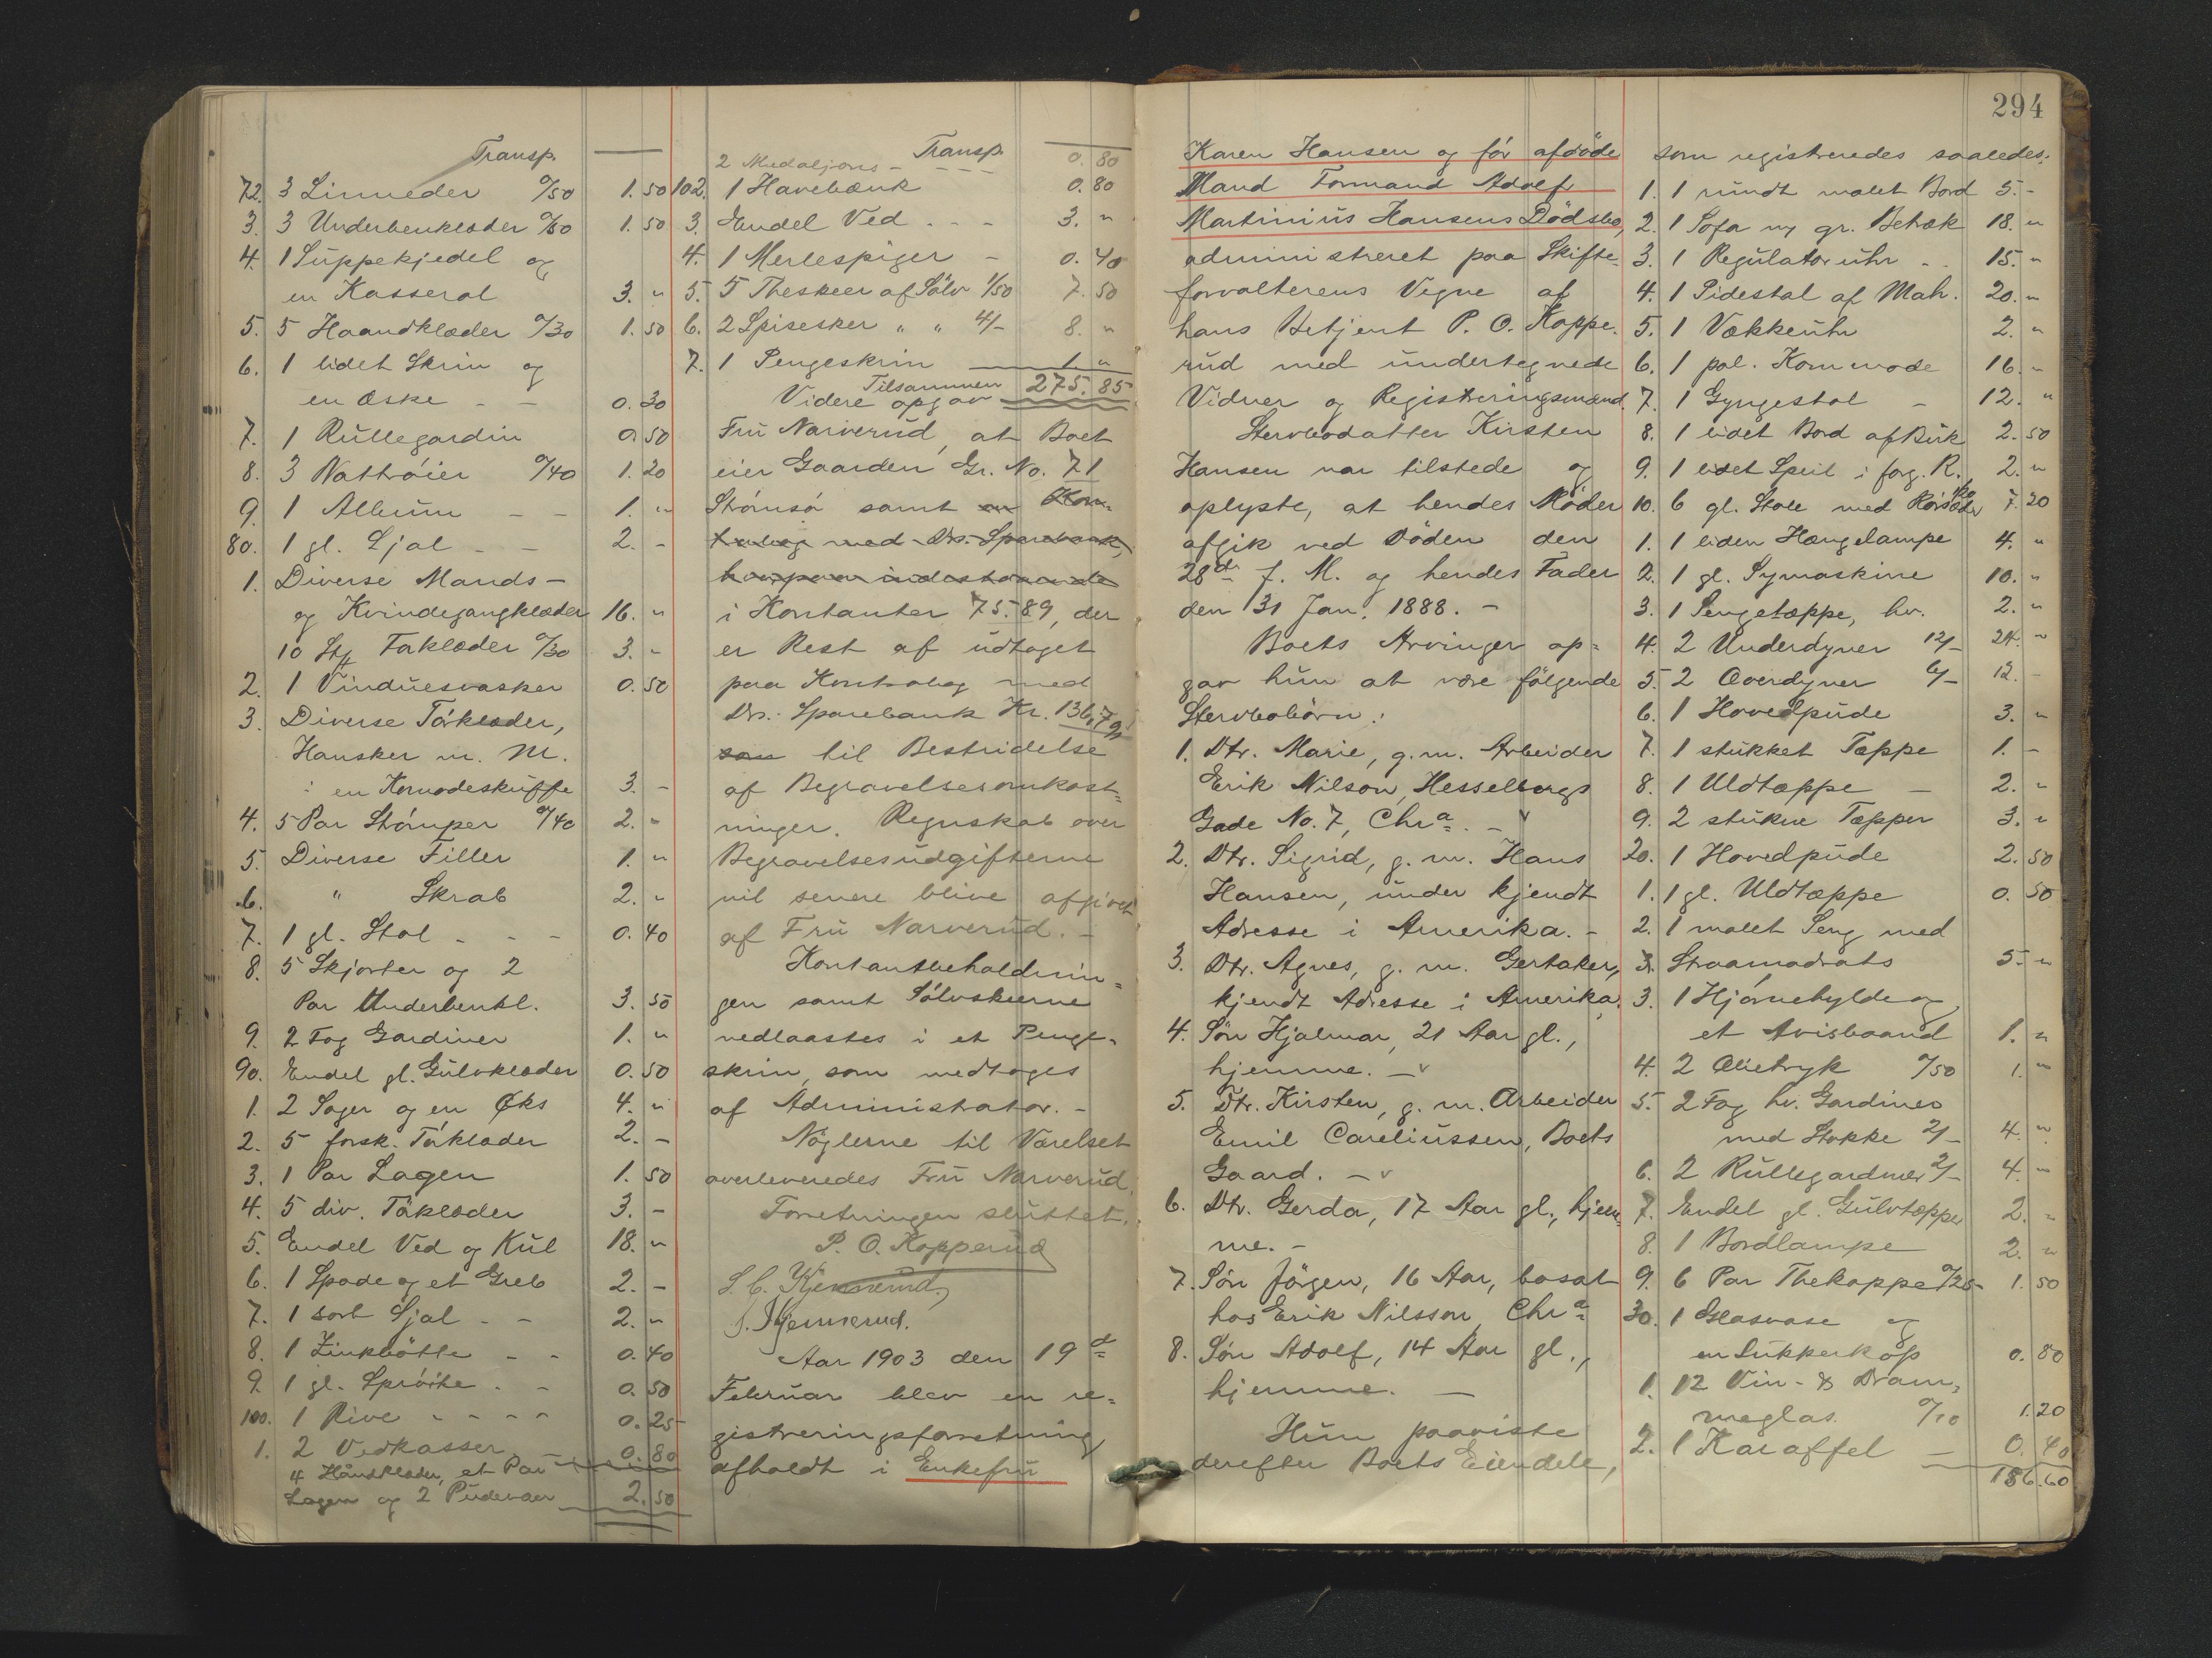 Transp.
72. 3 Linneder 0/50 1.50
3. 3 Underbenklæder 0/50 1.50
4. 1 Suppekjedel og
en Kasserol 3. "
5. 5 Haandklæder 0/30 1.50
6. 1 lidet Skrin og
en Æske - - 0.30
7. 1 Rullegardin 0.50
8. 3 Nattrøier 0/40 1.20
9. 1 Album - - 1. "
80. 1 gl. Sjal - - 2. -
1. Diverse Mands-
og Kvindegangklæder 16. "
10 Stk Töiklæder 0/30 3. -
2. 1 Vinduesvasker 0.50
3. Diverse Töiklæder,
Hansker m. M.
i en Komodeskuffe 3. -
4. 5 Par Strömper 0/40 2. "
5. Diverse Filler 1. "
6. " Skrab 2. "
7. 1 gl. Stol - - - 0.40
8. 5 Skjorter og 2
Par Underbenkl. 3.50
9. 2 Fag Gardiner 1. "
90. Endel gl. Gulvklæder 0.50
1. 2 Sager og en Øks 4. "
2. 5 forsk. Töiklæder 2. -
3. 1 Par Lagen 1.50
4. 5 div. Töiklæder 3. -
5. Endel Ved og Kul 18. "
6. 1 Spade og et Greb 2. -
7. 1 sort Sjal - - 2. "
8. 1 Zinkbötte - - 0.40
9. 1 gl. Spröite - - 0.50
100. 1 Rive - - - - 0.25
1. 2 Vedkasser - 0.80
4 Håndklæder, et Par
Lagen og 2 Pudevaer 2.50
Transp.
2 Medaljons - - - - 0.80
102. 1 Havebænk 0.80
3. Endel Ved - - - 3. "
4. 1 Merlespiger - 0.40
5. 5 Theskeer af Sölv 1/50 7.50
6. 2 Spiseskeer " " 4/- 8. "
7. 1 Pengeskrin 1. "
Tilsammen 275.85
Videre opgav
Fru Narverud, at Boet
eier Gaarden Gr. No. 71
Strömsö samt en Kon-
trabog med Drs. Sparebank,
hvorpaa indestaaende
i Kontanter 75.89, der
er Rest af udtaget
paa Kontrabog med
Drs. Sparebank Kr. 136,79
som til Bestridelse
af Begravelsesomkost-
ninger. Regnskab over
Begravelsesudgifterne
vil senere blive afgivet
af Fru Narverud. -
Kontantbeholdnin-
gen samt Sölvskeerne
nedlaastes i et Penge-
skrin, som medtoges
af Administrator. -
Nöglerne til Værelset
overleveredes Fru Narverud.
Forretningen sluttet.
P. O. Kopperud
S. C. Kjennerud,
J. Kjennerud.
Aar 1903 den 19 d
Februar blev en re-
gistreringsforretning
afholdt i Enkefru
294
Karen Hansen og før afdöde
Mand Formand Adolf
Martinius Hansens Dödsbo,
administreret paa Skifte-
forvalterens Vegne af
hans Betjent P. O. Koppe-
rud med undertegnede
Vidner og Registreringsmænd.
Stervbodatter Kirsten
Hansen var tilstede og
oplyste, at hendes Moder
afgik ved Döden den
28de f. M. og hendes Fader
den 31 Jan. 1888. -
Boets Arvinger op-
gav hun at være fölgende
Stervbobörn:
1. Dtr. Marie, g. m. Arbeider
Erik Nilson, Hesselbergs
Gade No. 7, Chra. -
2. Dtr. Sigrid, g. m. Hans
Hansen, under kjendt
Adresse i Amerika. -
3. Dtr. Agnes, g. m. Gertaker,
kjendt Adresse i Amerika.
4. Sön Hjalmar, 21 Aar gl.,
hjemme. -
5. Dtr. Kirsten, g. m. Arbeider
Emil Careliussen, Boets
Gaard. -
6. Dtr. Gerda, 17 Aar gl., hjem-
me. -
7. Sön Jörgen, 16 Aar, bosat
hos Erik Nilsson, Chra
8. Sön Adolf, 14 Aar gl.,
hjemme. -
Hun paaviste
derefter Boets Eiendele,
som registreredes saaledes:
1. 1 rundt malet Bord 5. -
2. 1 Sofa m gr. Betræk 18. "
3. 1 Regulatoruhr - - 15. "
4. 1 Pidestal af Mah. 20. "
5. 1 Vækkeuhr 2. "
6. 1 pol. Kommode 16. "
7. 1 Gyngestol - 12. "
8. 1 lidet Bord af Birk 2.50
9. 1 lidet Speil i forg. R. 2. "
10. 6 gl. Stole med Rörsæder 1/20 7.20
1. 1 liden Hængelampe 4. "
2. 1 gl. Symaskine 10. "
3. 1 Sengetæppe, hv. 2. "
4. 2 Underdyner 12/- 24. "
5. 2 Overdyner 6/- 12. -
6. 1 Hovedpude 3. "
7. 1 stukket Tæppe 1. -
8. 1 Uldtæppe - 2. "
9. 2 stukne Tæpper 3. "
20. 1 Hovedpude 2.50
1. 1 gl. Uldtæppe 0.50
2. 1 malet Seng med
3. Straamadrats 5. "
3. 1 Hjörnehylde og
et Avisbaand 1. "
4. 2 Olietryk 0/50 1. "
5. 2 Fag hv. Gardiner
med Stokke 2/- 4. "
6. 2 Rullegardiner 2/- 4. "
7. Endel gl. Gulvtæpper 2. "
8. 1 Bordlampe 2. "
9. 6 Par Thekoppe 0/25 1.50
30. 1 Glasvase og
en Sukkerkop 0.80
1. 12 Vin- & Dram-
meglas. 0/10 1.20
2. 1 Karaffel - 0.40
186.60